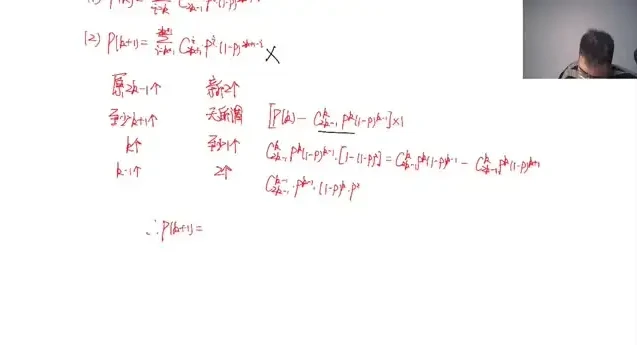 (2) P(k+1) = Σ C_{2k+1}^{i} P^{i} (1-P)^{2k+1-i} ×
原2k-1个 新2个
至少k+1个 无所谓 [P(k) - C_{2k-1}^{k} P^{k} (1-P)^{k-1}]×1
k个 至少1个 C_{2k-1}^{k} P^{k} (1-P)^{k-1}·[1-(1-P)²] = C_{2k-1}^{k} P^{k} (1-P)^{k-1} - C_{2k-1}^{k} P^{k} (1-P)^{k+1}
k-1个 2个 C_{2k-1}^{k-1}·P^{k-1}·(1-P)^{k}·P²
∴P(k+1)=